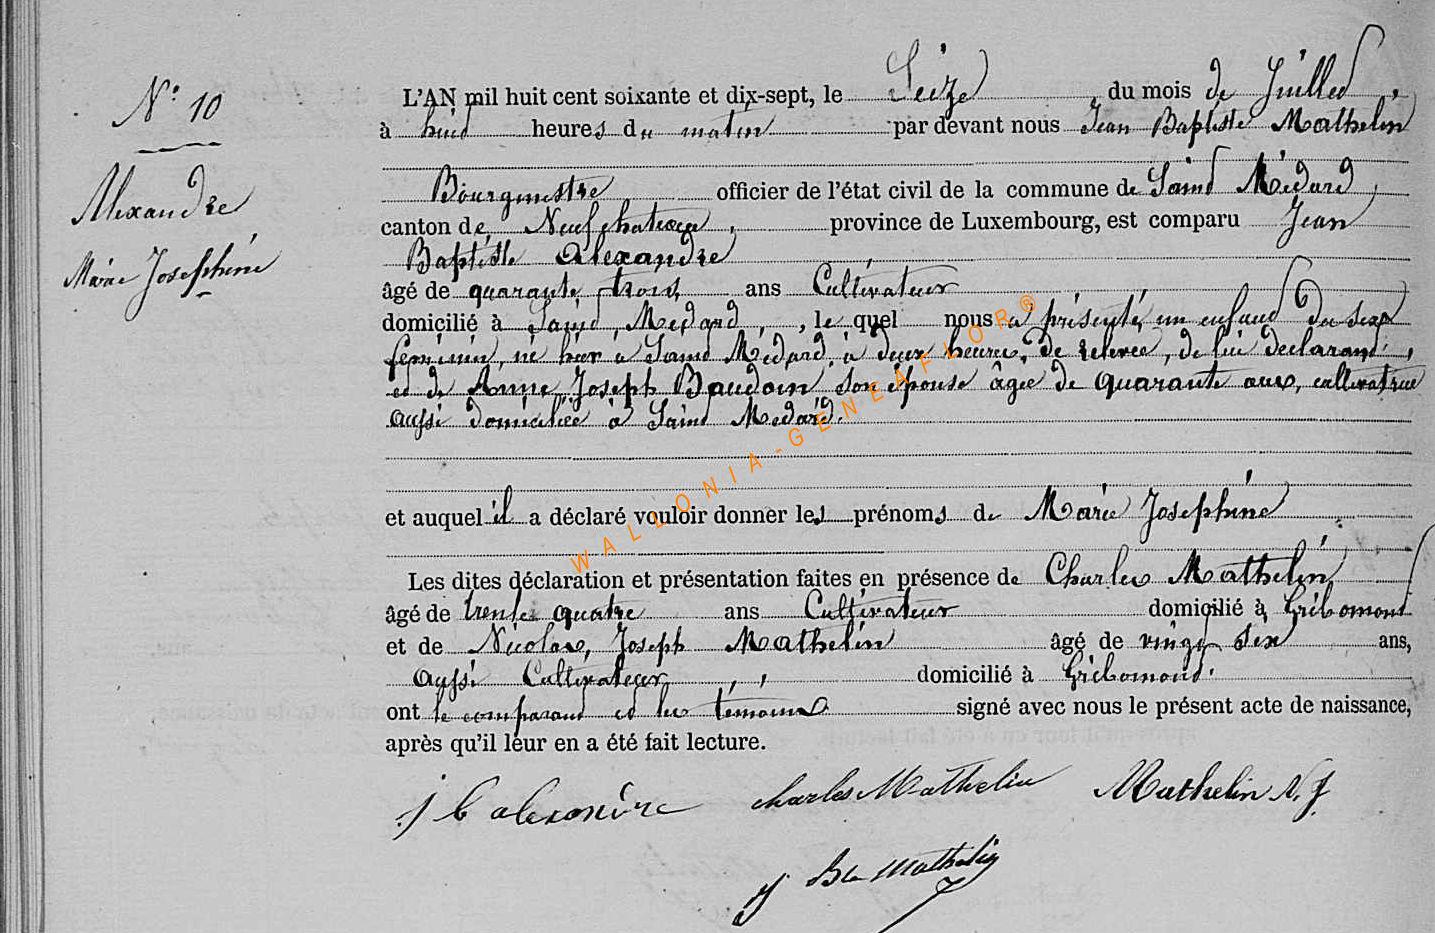 N° 10
Alexandre
Marie Josephine
L'AN mil huit cent soixante et dix-sept, le Seize du mois de Juillet,
à huit heures du matin par devant nous Jean Baptiste Mathelin
Bourgmestre officier de l'état civil de la commune de Saint Médard,
canton de Neufchateau, province de Luxembourg, est comparu Jean
Baptiste Alexandre
âgé de quarante trois ans Cultivateur
domicilié à Saint Médard, le quel nous a présenté un enfant du sexe
féminin, né hier à Saint Médard à deux heures de relevée, de lui déclarant,
et de Anne Joseph Baudoin son épouse âgée de quarante ans, cultivatrice
aussi domiciliée à Saint Médard.
et auquel il a déclaré vouloir donner les prénoms de Marie Josephine
Les dites déclaration et présentation faites en présence de Charles Mathelin,
âgé de trente quatre ans Cultivateur domicilié à Gribomont
et de Nicolas Joseph Mathelin âgé de vingt six ans,
aussi Cultivateur domicilié à Gribomont.
ont le comparant et les témoins signé avec nous le présent acte de naissance,
après qu'il leur en a été fait lecture.
J B alexandre Charles Mathelin Mathelin N. J
J Bte Mathelin
WALLONIA-GENEAFLOR®